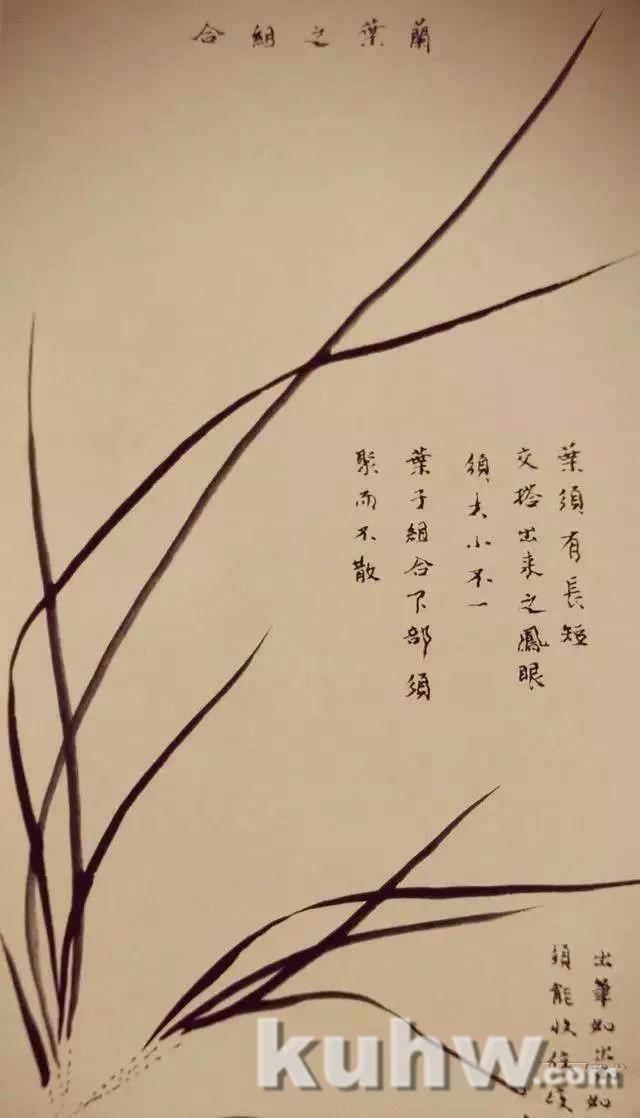 蘭葉之組合
葉須有長短
交搭出來之鳳眼
須大小不一
葉子組合下部須
聚而不散
出筆如
須能收
kuhw.com